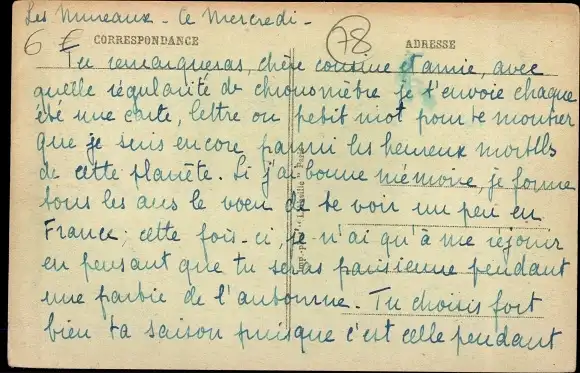 Les Mureaux - Ce Mercredi -
6 €
CORRESPONDANCE
78
ADRESSE
Tu remarqueras, chère cousine et amie, avec
quelle régularité de chronomètre je t'envoie chaque
été une carte, lettre ou petit mot pour te montrer
que je suis encore parmi les heureux mortels
de cette planète. Si j'ai bonne mémoire, je forme
tous les ans le voeu de te voir un peu en
France ; cette fois-ci, je n'ai qu'à me réjouir
en pensant que tu seras parisienne pendant
une partie de l'automne. Tu choisis fort
bien ta saison puisque c'est celle pendant